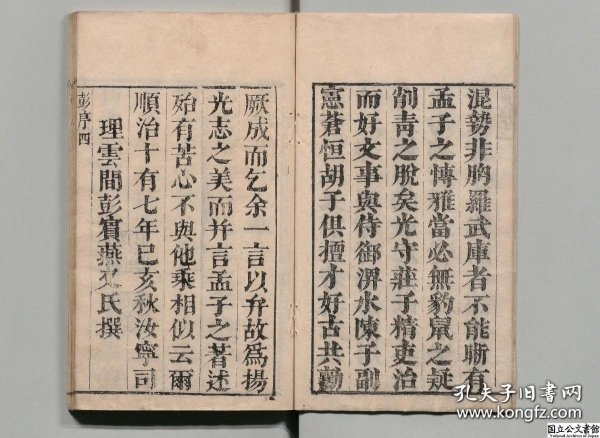 混勢非胸羅武庫者不能晰有
孟子之慱雅當必無豹䑕之疑
削青之脫矣光守莊子精吏治
而好文事與侍御淠水陳子副
憲蒼恒胡子俱擅才好古共勸
厥成而乞余一言以弁故爲揚
光志之美而并言孟子之著述
殆有苦心不與他乘相似云爾
順治十有七年巳亥秋汝寧司
理雲間彭賓燕又氏撰
彭序四
孔夫子旧书网
www.kongfz.com
国立公文書館
National Archives of Japan